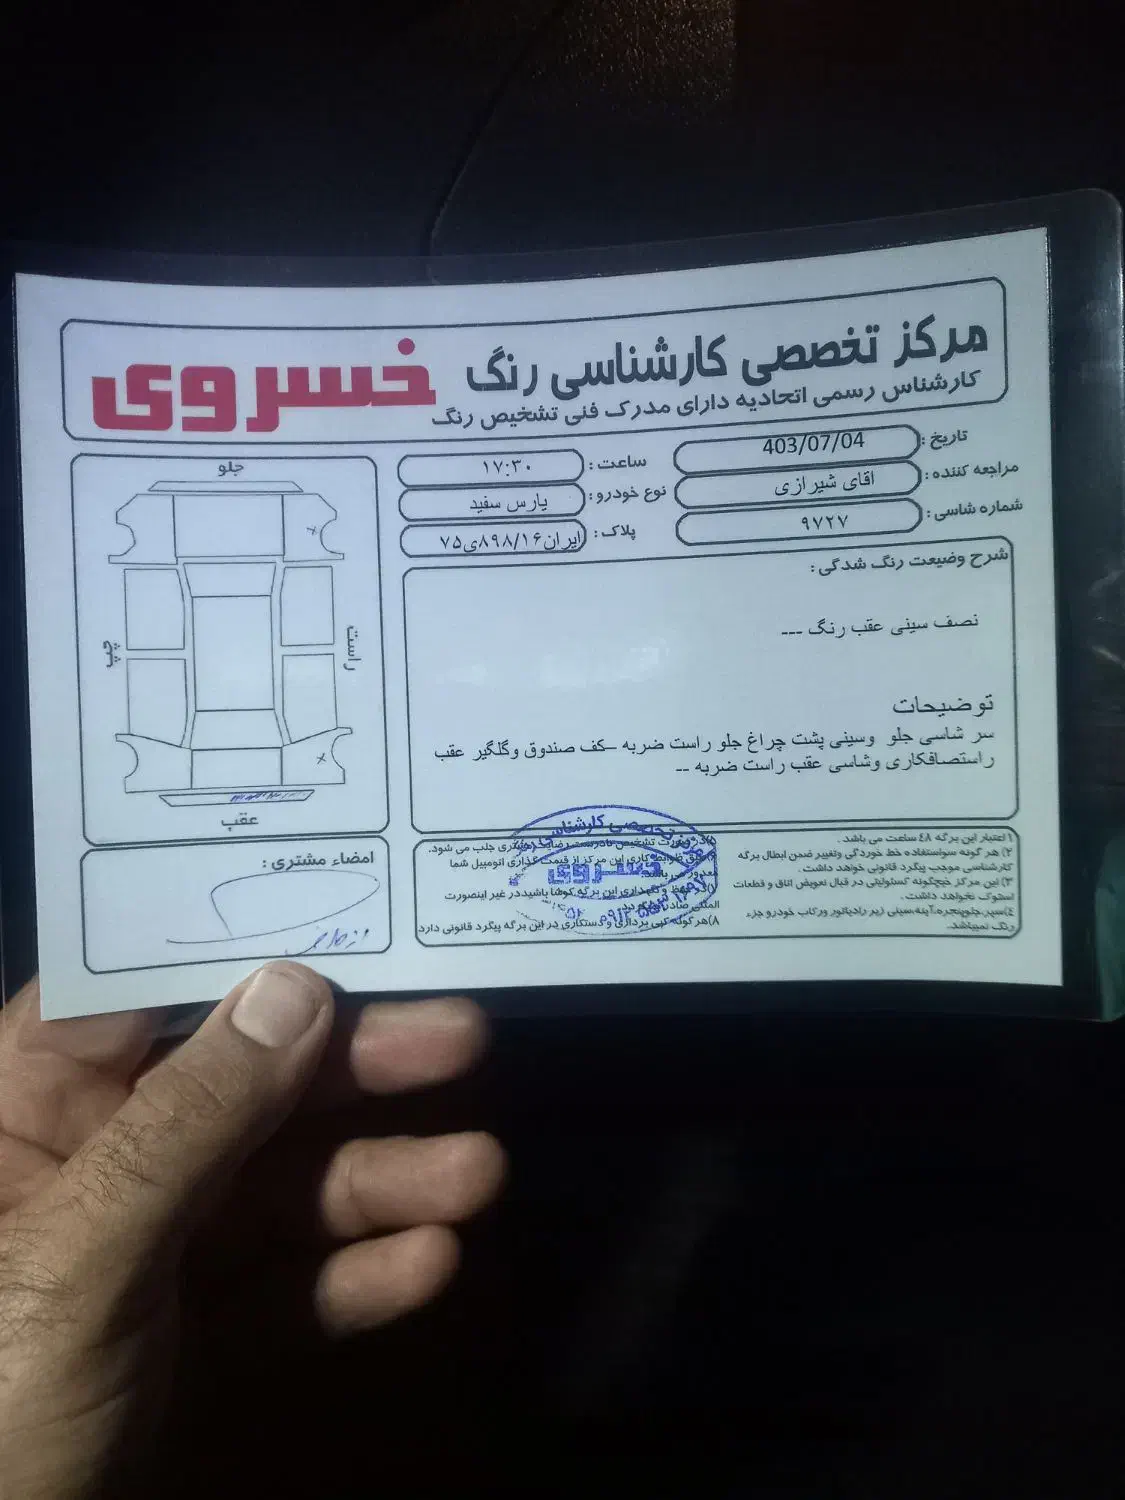 مرکز تخصصی کارشناسی رنگ خسروی
کارشناس رسمی اتحادیه دارای مدرک فنی تشخیص رنگ
تاریخ : 403/07/04
ساعت : ۱۷:۳۰
مراجعه کننده : اقای شیرازی
نوع خودرو : پارس سفید
شماره شاسی : ۹۷۲۷
پلاک : ایران۸۹۸/۱۶ی۷۵
جلو
راست
چپ
عقب
شرح وضیعت رنگ شدگی :
نصف سینی عقب رنگ ---
توضیحات
سر شاسی جلو وسینی پشت چراغ جلو راست ضربه –کف صندوق وگلگیر عقب
راستصافکاری وشاسی عقب راست ضربه --
امضاء مشتری :
۱) اعتبار این برگه ٤٨ ساعت می باشد .
۲) هر گونه سواستفاده خط خوردگی وتغییر ضمن ابطال برگه
کارشناسی موجب پیگرد قانونی خواهد داشت .
۳) این مرکز هیچگونه مسئولیتی در قبال تعویض اتاق و قطعات
استوک نخواهد داشت .
٤) سپر.جلوپنجره.آینه.سینی زیر رادیاتور ورکاب خودرو جزء
رنگ نمیباشد.
صورت تشخیص نادرست رضایت مشتری جلب می شود.
کاری این مرکز از قیمت گذاری اتومبیل شما
معذور می باشد.
نگهداری این برگه کوشا باشید در غیر اینصورت
المثنی صادر
۸) هر گونه کپی برداری و دستکاری در این برگه پیگرد قانونی دارد
مرکز تخصصی کارشناسی رنگ
خسروی